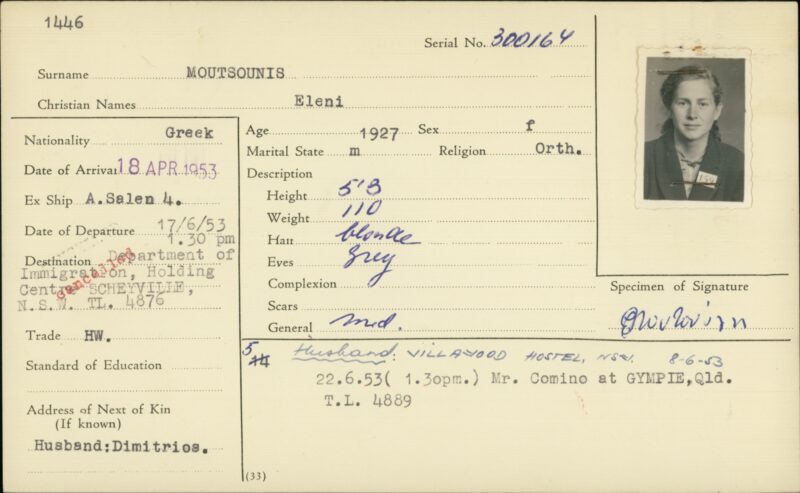 1446
Serial No. 300164
Surname MOUTSOUNIS
Christian Names Eleni
Nationality Greek
Date of Arrival 18 APR 1953
Ex Ship A.Salen 4.
Date of Departure 17/6/53
1.30 pm
Destination Department of
Immigration, Holding
Centre SCHEYVILLE,
N.S.W. TL. 4876
cancelled
Trade HW.
Standard of Education
Address of Next of Kin
(If known)
Husband:Dimitrios.
Age 1927 Sex f
Marital State m Religion Orth.
Description
Height 5'3
Weight 110
Hair blonde
Eyes grey
Complexion
Scars
General med.
Specimen of Signature
5 Husband: VILLAWOOD HOSTEL, NSW. 8-6-53
22.6.53( 1.30pm.) Mr. Comino at GYMPIE,Qld.
T.L. 4889
(33)